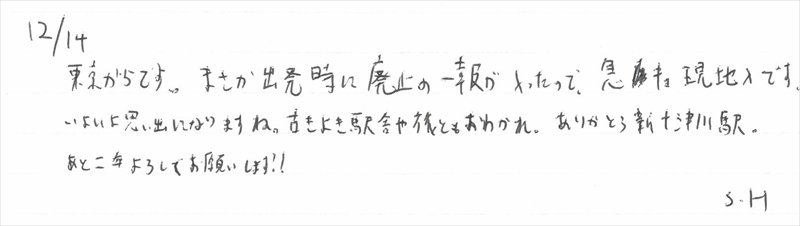 12/14
東京からです。まさか出発時に廃止の一報が入ったって、急 現地入です。
いよいよ思い出になりますね。古きよき駅舎や旅ともおわかれ。ありがとう新十津川駅。
あと二年よろしくお願いします!!
S.H